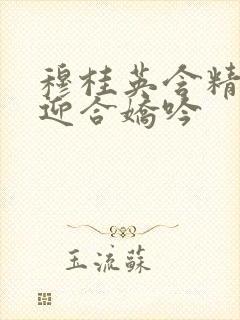 穆桂英含精
迎合嬌吟
玉流蘇